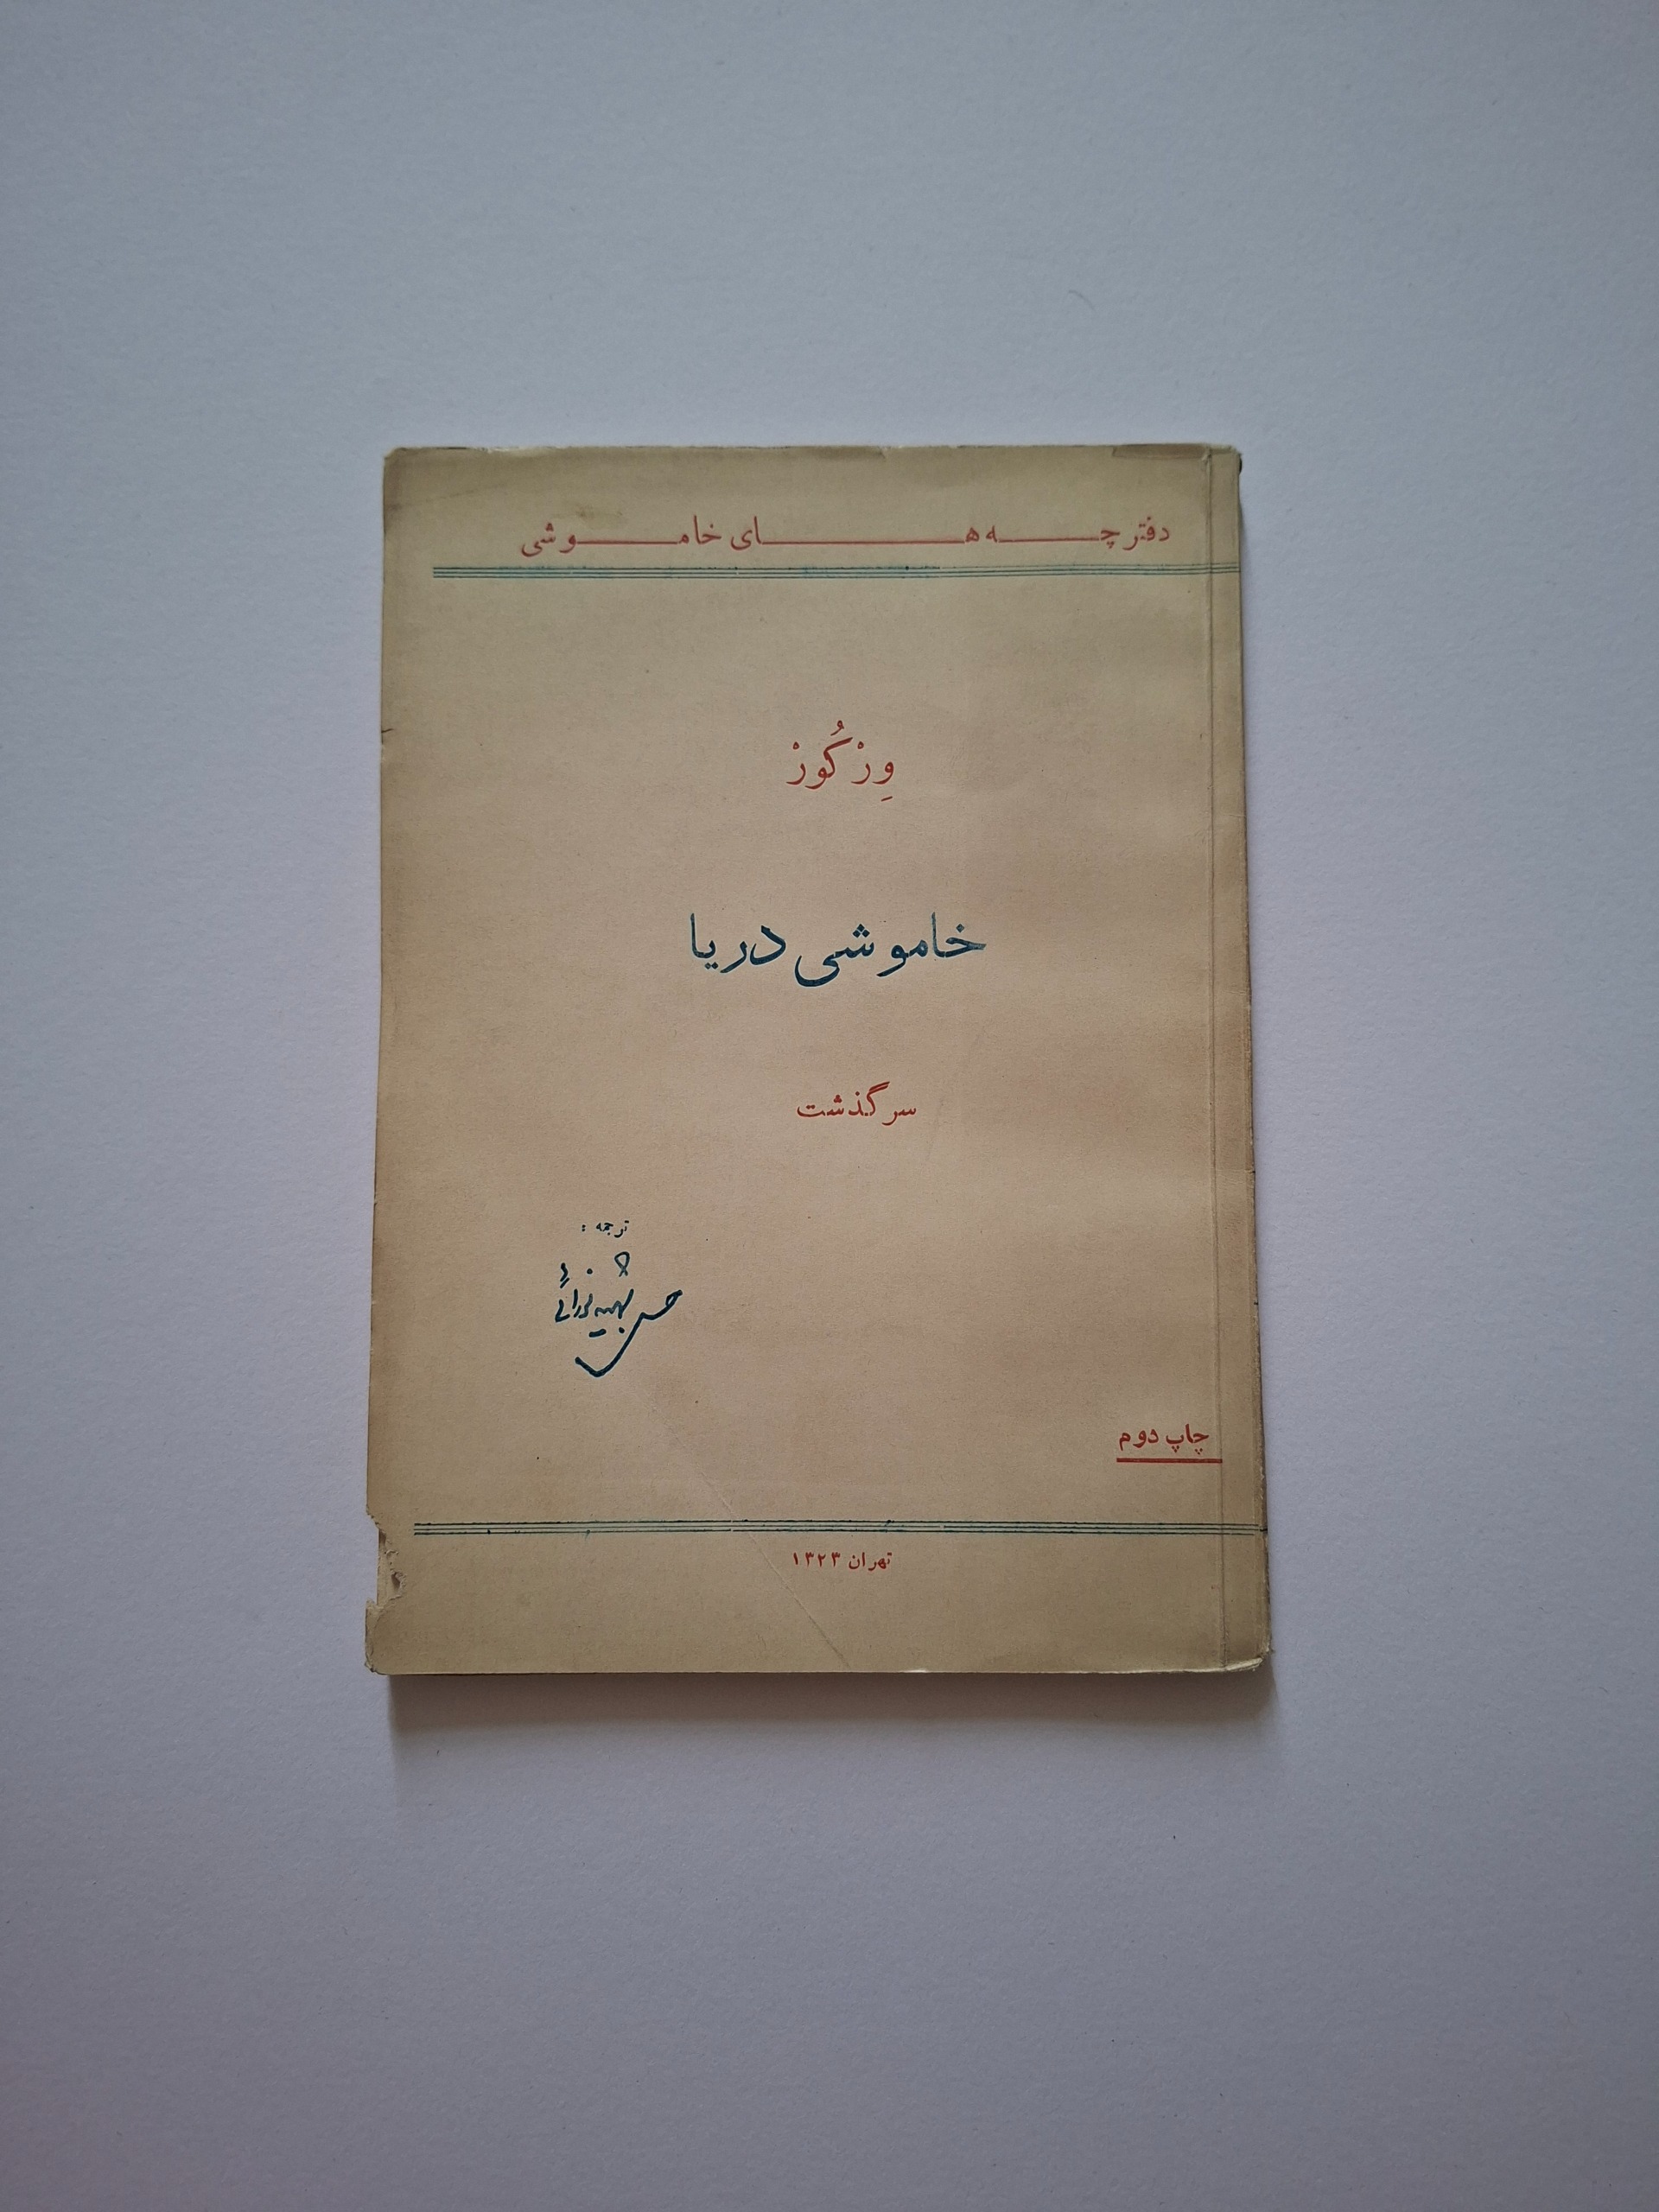 دفترچه های خاموشی
وِرْکُورْ
خاموشی دریا
سرگذشت
ترجمه :
حسن شهید نورائی
چاپ دوم
تهران ۱۳۲۳